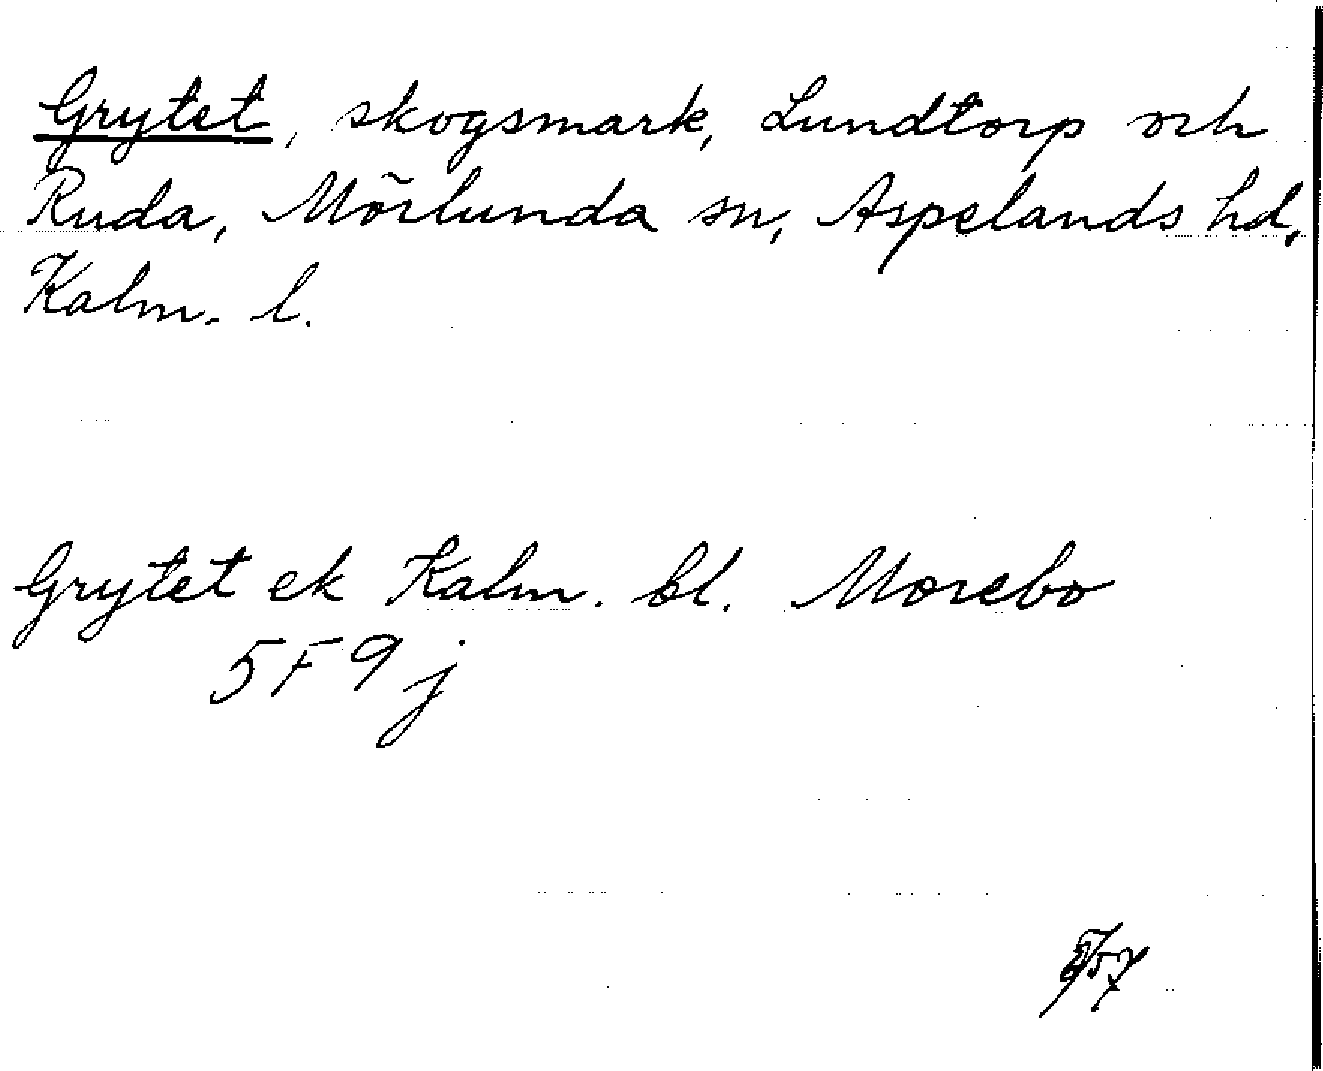 Grytet, skogsmark, Lundtorp och
Ruda, Mörlunda sn, Aspelands hd,
Kalm. l.
Grytet ek Kalm. bl. Morebo
5F9j